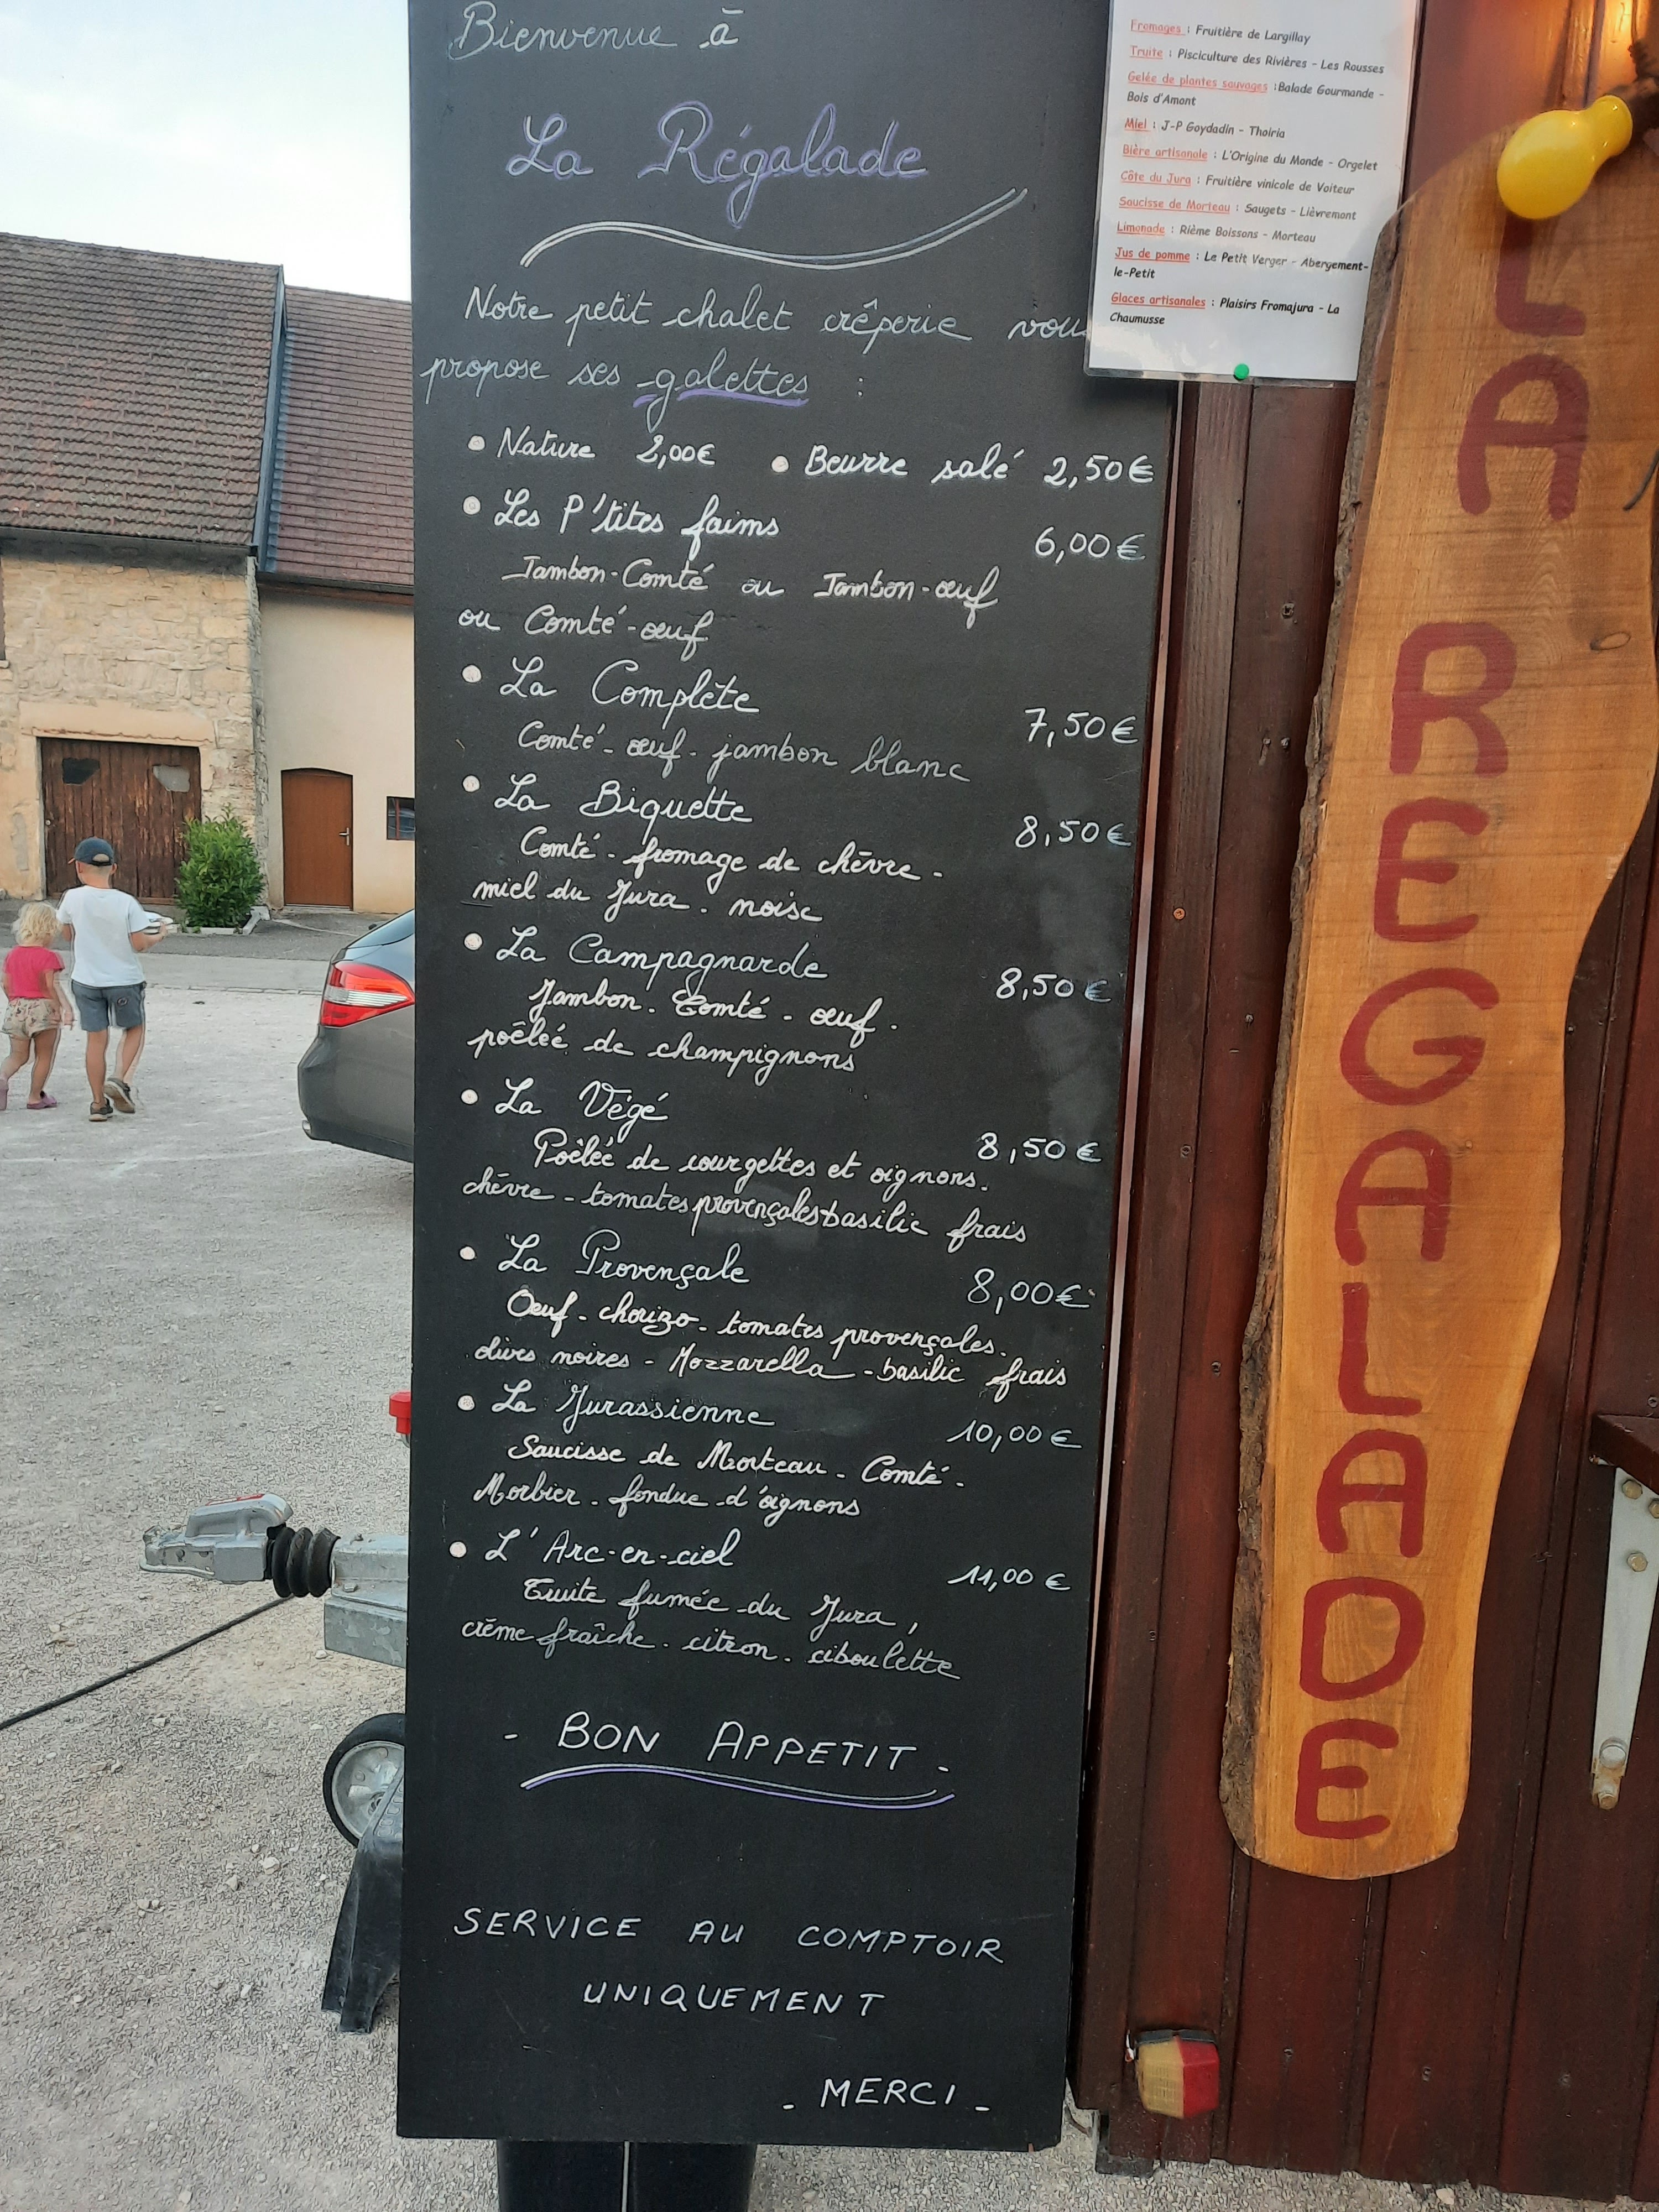 Bienvenue à
La Régalade
Notre petit chalet crêperie vous
propose ses galettes :
• Nature 2,00€ • Beurre salé 2,50€
• Les P'tites faims 6,00€
Jambon-Comté ou Jambon-œuf
ou Comté-œuf
• La Complète 7,50€
Comté - œuf - jambon blanc
• La Biquette 8,50€
Comté - fromage de chèvre -
miel du Jura - noisc
• La Campagnarde 8,50€
Jambon - Comté - œuf -
poêlée de champignons
• La Végé 8,50€
Poêlée de courgettes et oignons -
chèvre - tomates provençales basilic frais
• La Provençale 8,00€
Oeuf - chorizo - tomates provençales -
olives noires - Mozzarella - basilic frais
• La Jurassienne 10,00€
Saucisse de Morteau - Comté -
Morbier - fondue d'oignons
• L'Arc-en-ciel 11,00€
Truite fumée du Jura,
crème fraîche - citron - ciboulette
- BON APPETIT -
SERVICE AU COMPTOIR
UNIQUEMENT
- MERCI -
Fromages : Fruitière de Largillay
Truite : Pisciculture des Rivières - Les Rousses
Gelée de plantes sauvages :Balade Gourmande -
Bois d'Amont
Miel : J-P Goydadin - Thoiria
Bière artisanale : L'Origine du Monde - Orgelet
Côte du Jura : Fruitière vinicole de Voiteur
Saucisse de Morteau : Saugets - Lièvremont
Limonade : Rième Boissons - Morteau
Jus de pomme : Le Petit Verger - Abergement-
le-Petit
Glaces artisanales : Plaisirs Fromajura - La
Chaumusse
LA REGALADE